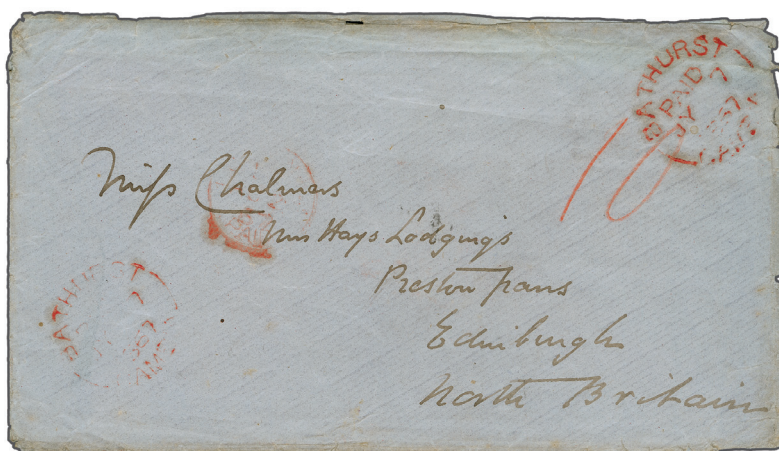 BATHURST
PAID
JY 7
1867
GAMBIA
10
Miss Chalmers
PAID
Mrs Hays Lodgings
Prestonpans
Edinburgh
North Britain
BATHURST
7